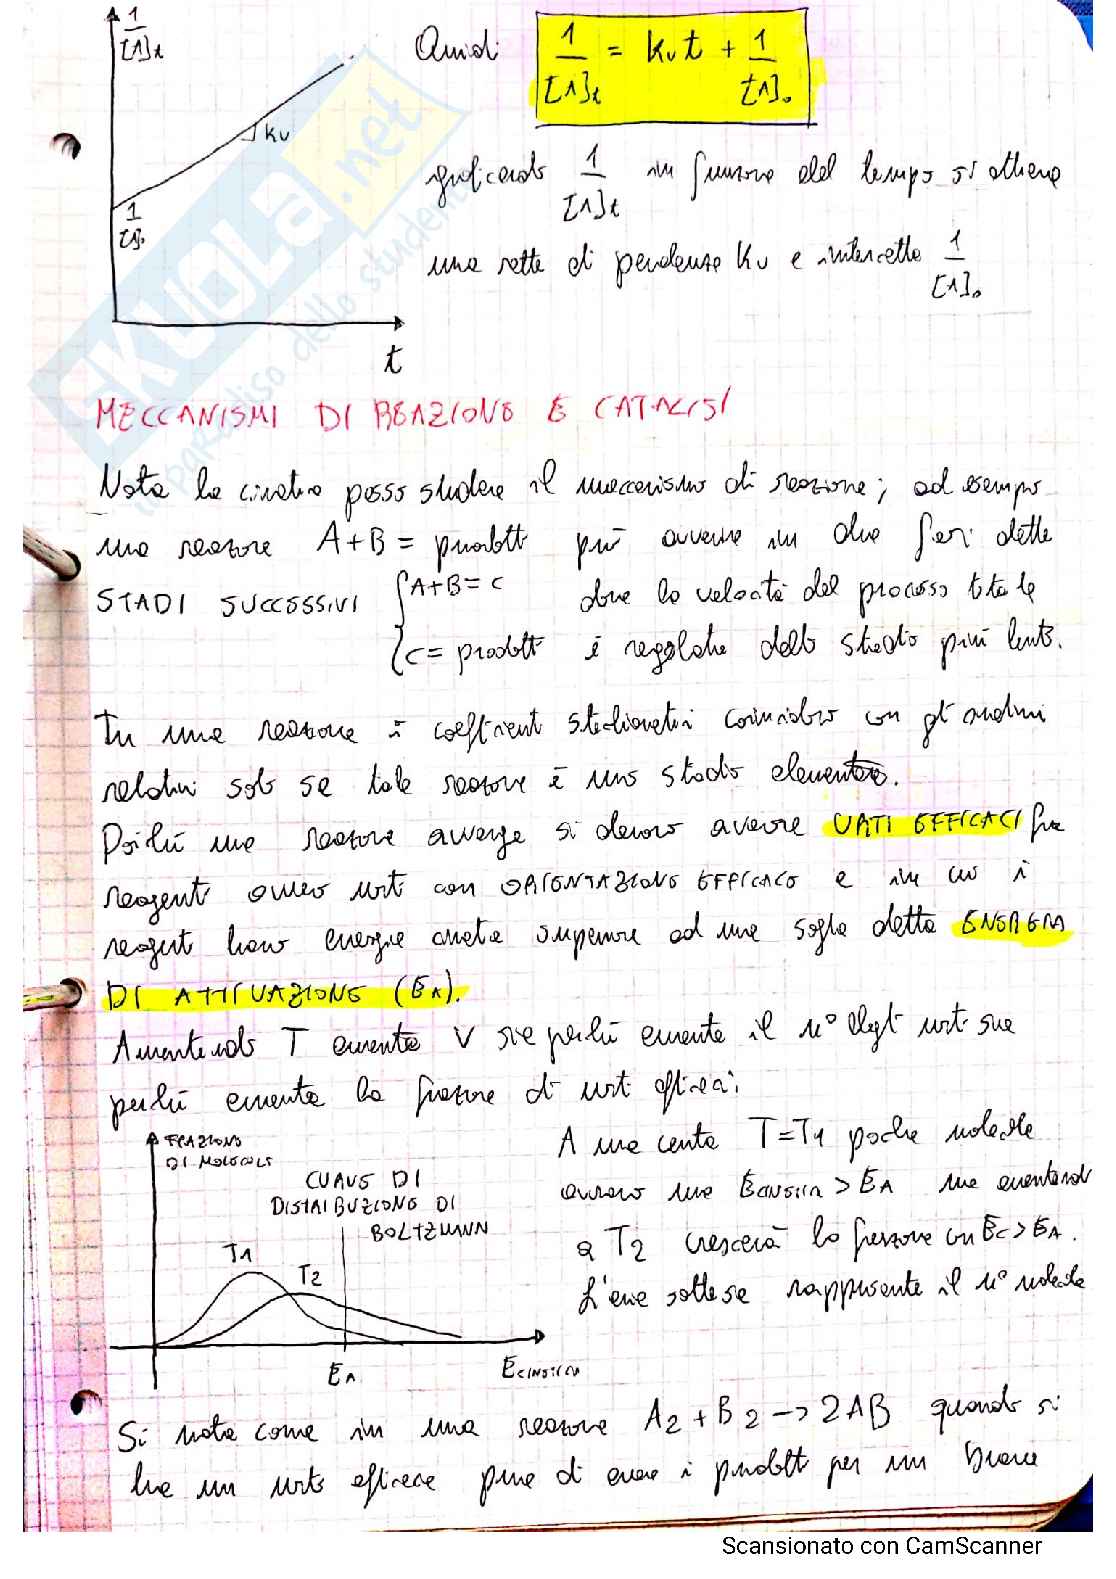 1
[A]t
Quindi 1/[A]t = Kv t + 1/[A]o
Kv
graficando 1/[A]t in funzione del tempo si ottiene
1/[A]o
una retta di pendenza Kv e intercetta 1/[A]o
t
SKUOLA.net
il paradiso dello studente
MECCANISMI DI REAZIONE E CATALISI
Nota la cinetica posso studiare il meccanismo di reazione; ad esempio
una reazione A+B = prodotti può avvenire in due fasi dette
STADI SUCCESSIVI { A+B = C dove la velocità del processo totale
C = prodotti è regolata dallo stadio più lento.
In una reazione i coefficienti stechiometrici coincidono con gli ordini
relativi solo se tale reazione è uno stadio elementare.
Poiché una reazione avvenga si devono avere URTI EFFICACI fra
reagenti ovvero urti con ORIENTAZIONE EFFICACE e in cui i
reagenti hanno energia cinetica superiore ad una soglia detta ENERGIA
DI ATTIVAZIONE (EA).
Aumentando T aumenta V sia perché aumenta il n° degli urti sia
perché aumenta la frazione di urti efficaci
FRAZIONE
DI MOLECOLE
CURVE DI
DISTRIBUZIONE DI
BOLTZMANN
T1
T2
EA
ECINETICA
A una certa T=T1 poche molecole
avranno una Ecinetica > EA ma aumentando
a T2 crescerà la frazione con Ec > EA.
L'area sottesa rappresenta il n° molecole
Si nota come in una reazione A2 + B2 -> 2AB quando si
ha un urto efficace prima di avere i prodotti per un breve
Scansionato con CamScanner